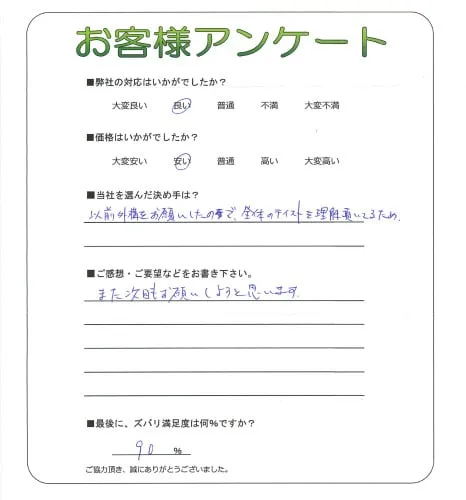 お客様アンケート
■弊社の対応はいかがでしたか？
大変良い 良い 普通 不満 大変不満
■価格はいかがでしたか？
大変安い 安い 普通 高い 大変高い
■当社を選んだ決め手は？
以前外構をお願いしたので、全体のテイストを理解頂いてるため
■ご感想・ご要望などをお書き下さい。
また次回もお願いしようと思います。
■最後に、ズバリ満足度は何%ですか？
90 %
ご協力頂き、誠にありがとうございました。